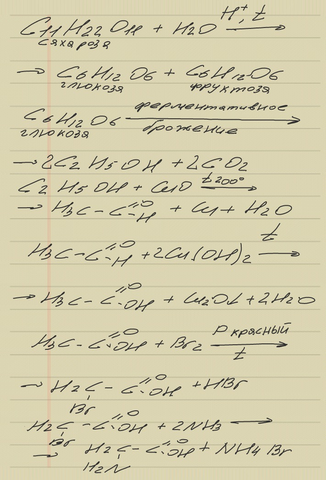 C11H22O11 + H2O H+, t →
сахароза
→ C6H12O6 + C6H12O6
глюкоза фруктоза
C6H12O6 ферментативное брожение →
глюкоза
→ 2C2H5OH + 2CO2
C2H5OH + CuO t 200° →
→ H3C - C =O - H + Cu + H2O
H3C - C =O - H + 2Cu(OH)2 t →
→ H3C - C =O - OH + Cu2O↓ + 2H2O
H3C - C =O - OH + Br2 P красный t →
→ H2C - C =O - OH + HBr
Br
H2C - C =O - OH + 2NH3 →
Br
→ H2C - C =O - OH + NH4Br
H2N